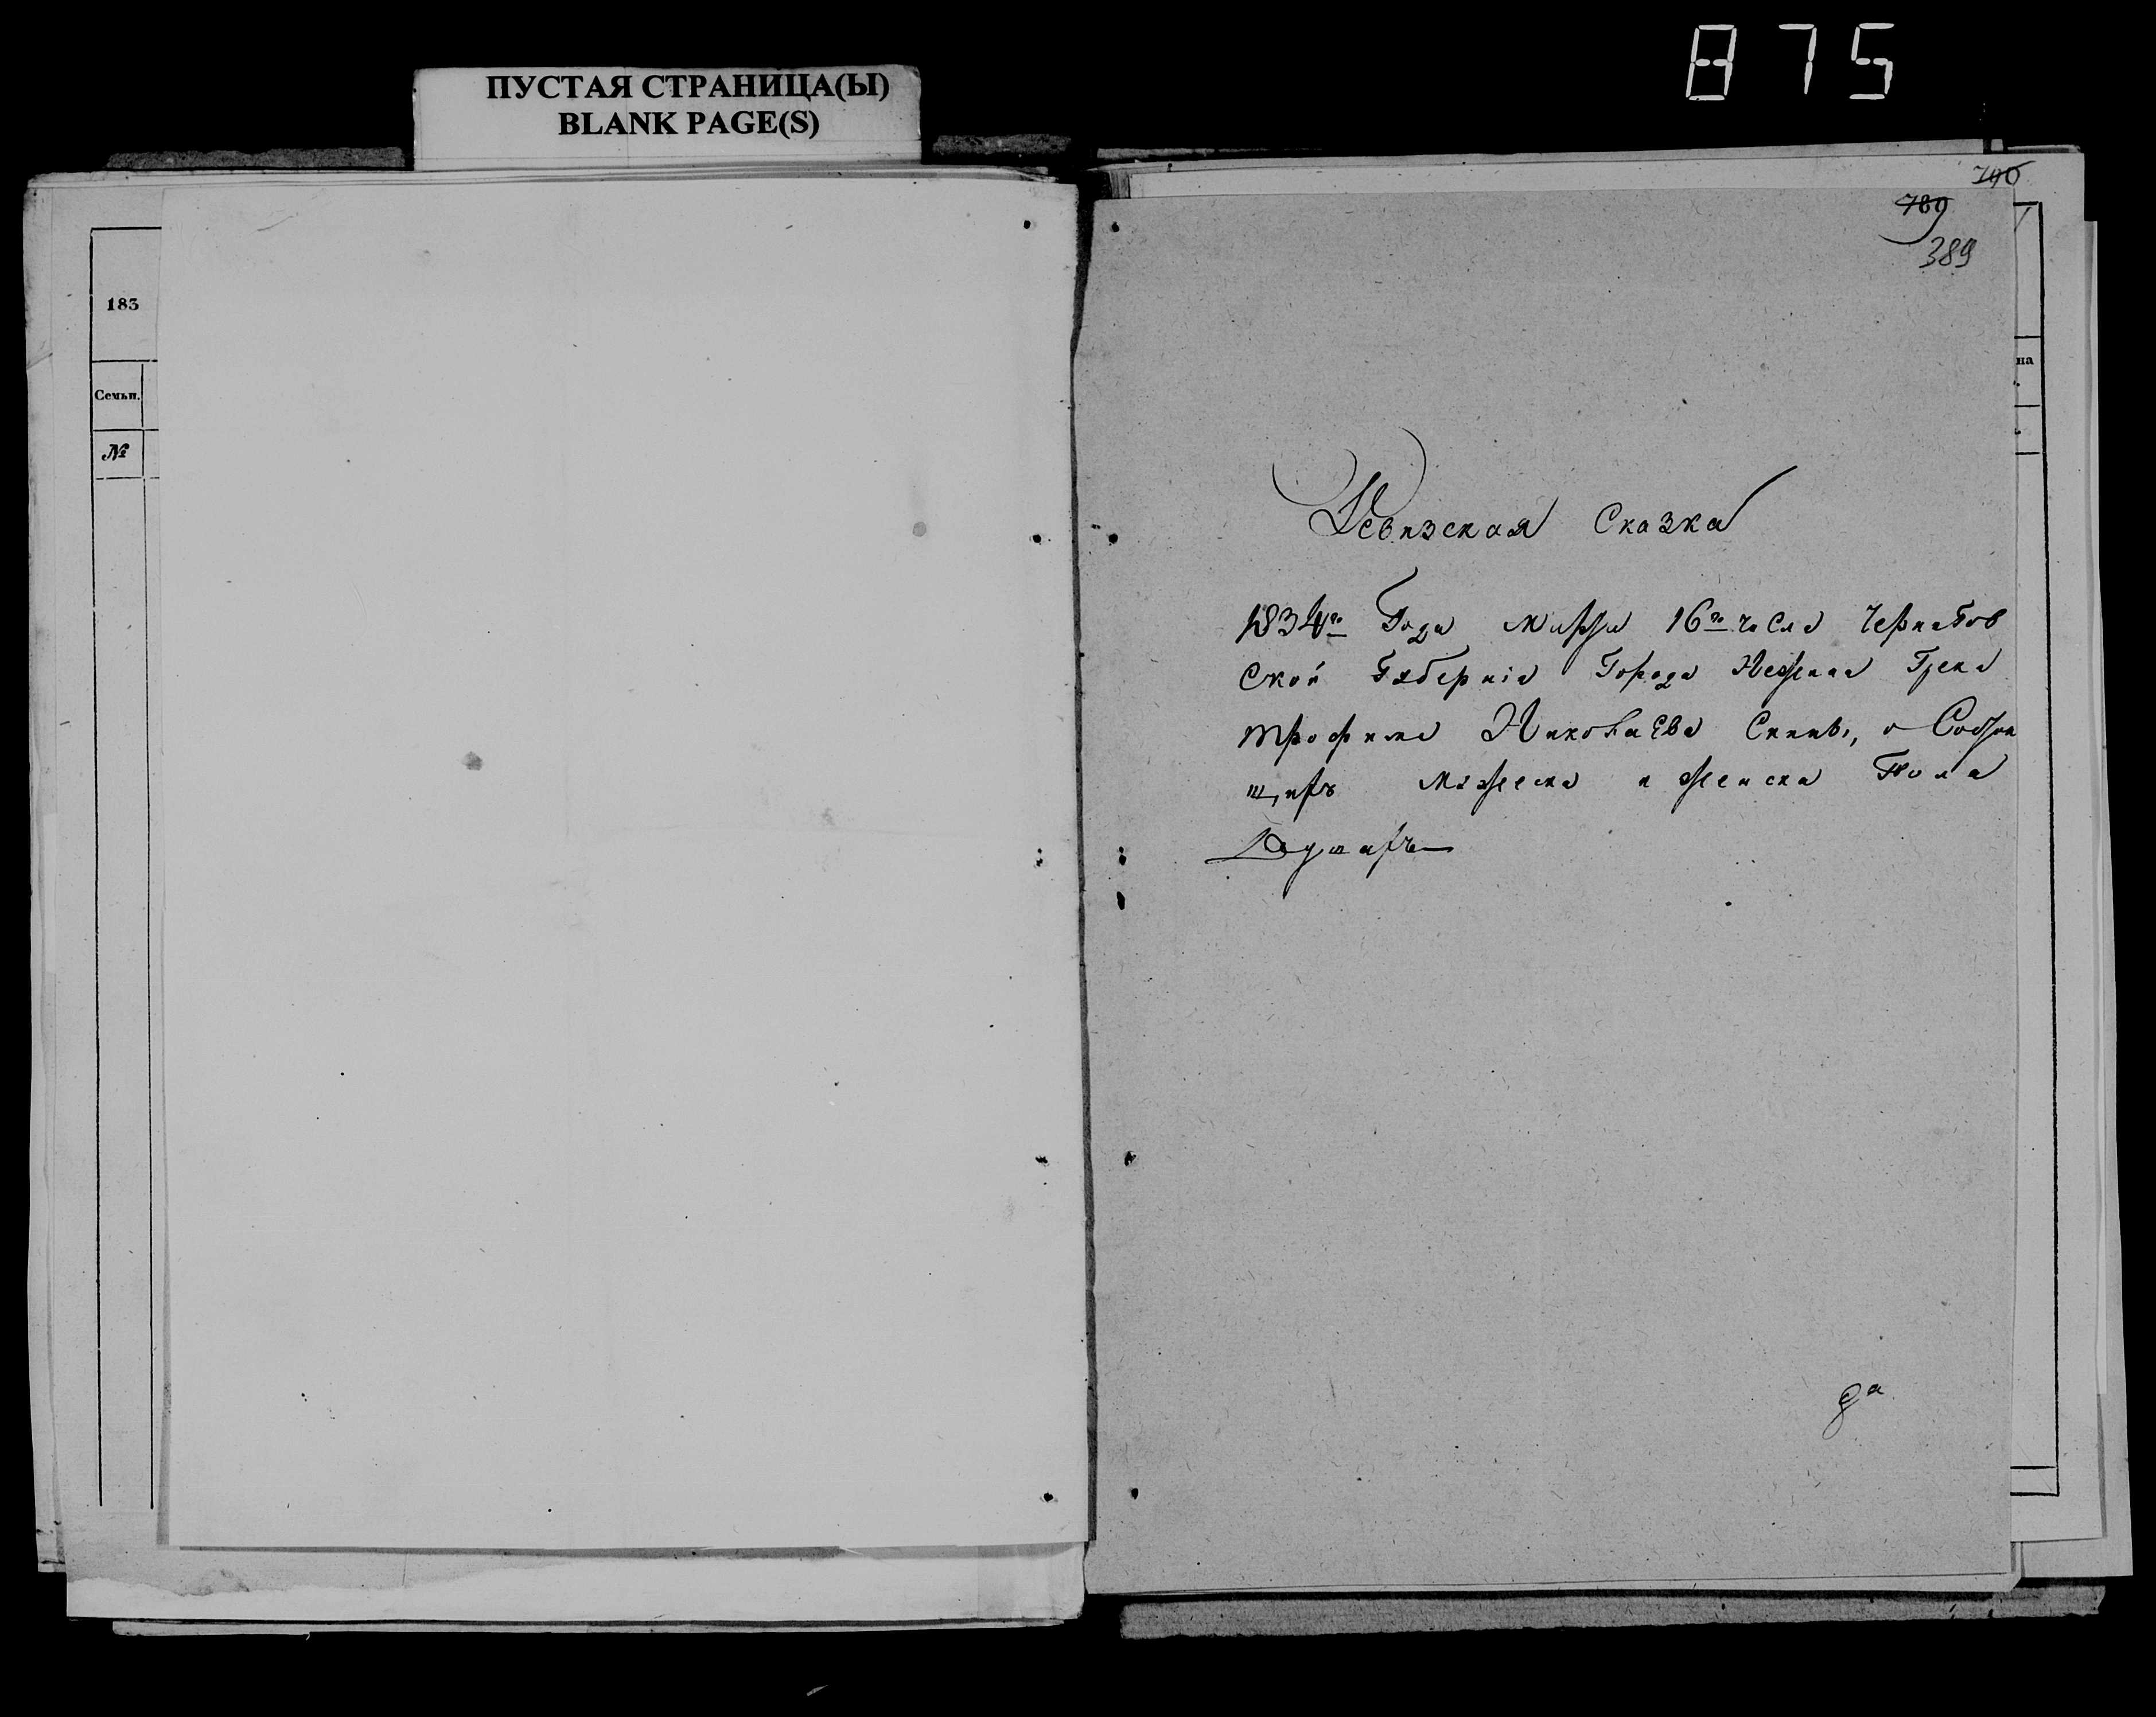 ПУСТАЯ СТРАНИЦА(Ы)
BLANK PAGE(S)
875
183
Семьи.
№
790
789
389
на
Ревизская Сказка
1834го Года марта 16го числа Чернигов
ской Губернiи Города Нежина Грека
трофима Николаева Скины, о Состоя
щихъ мужеска и женска Пола
Душахъ